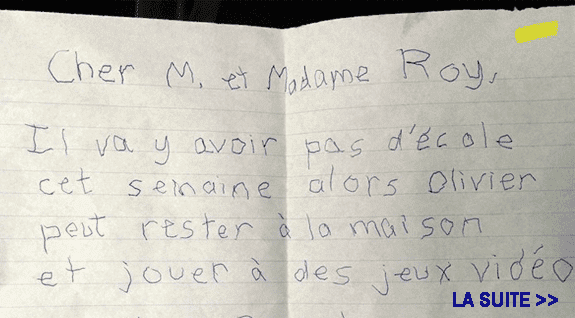 Cher M. et Madame Roy,
Il va y avoir pas d'école
cet semaine alors Olivier
peut rester à la maison
et jouer à des jeux vidéo
LA SUITE >>